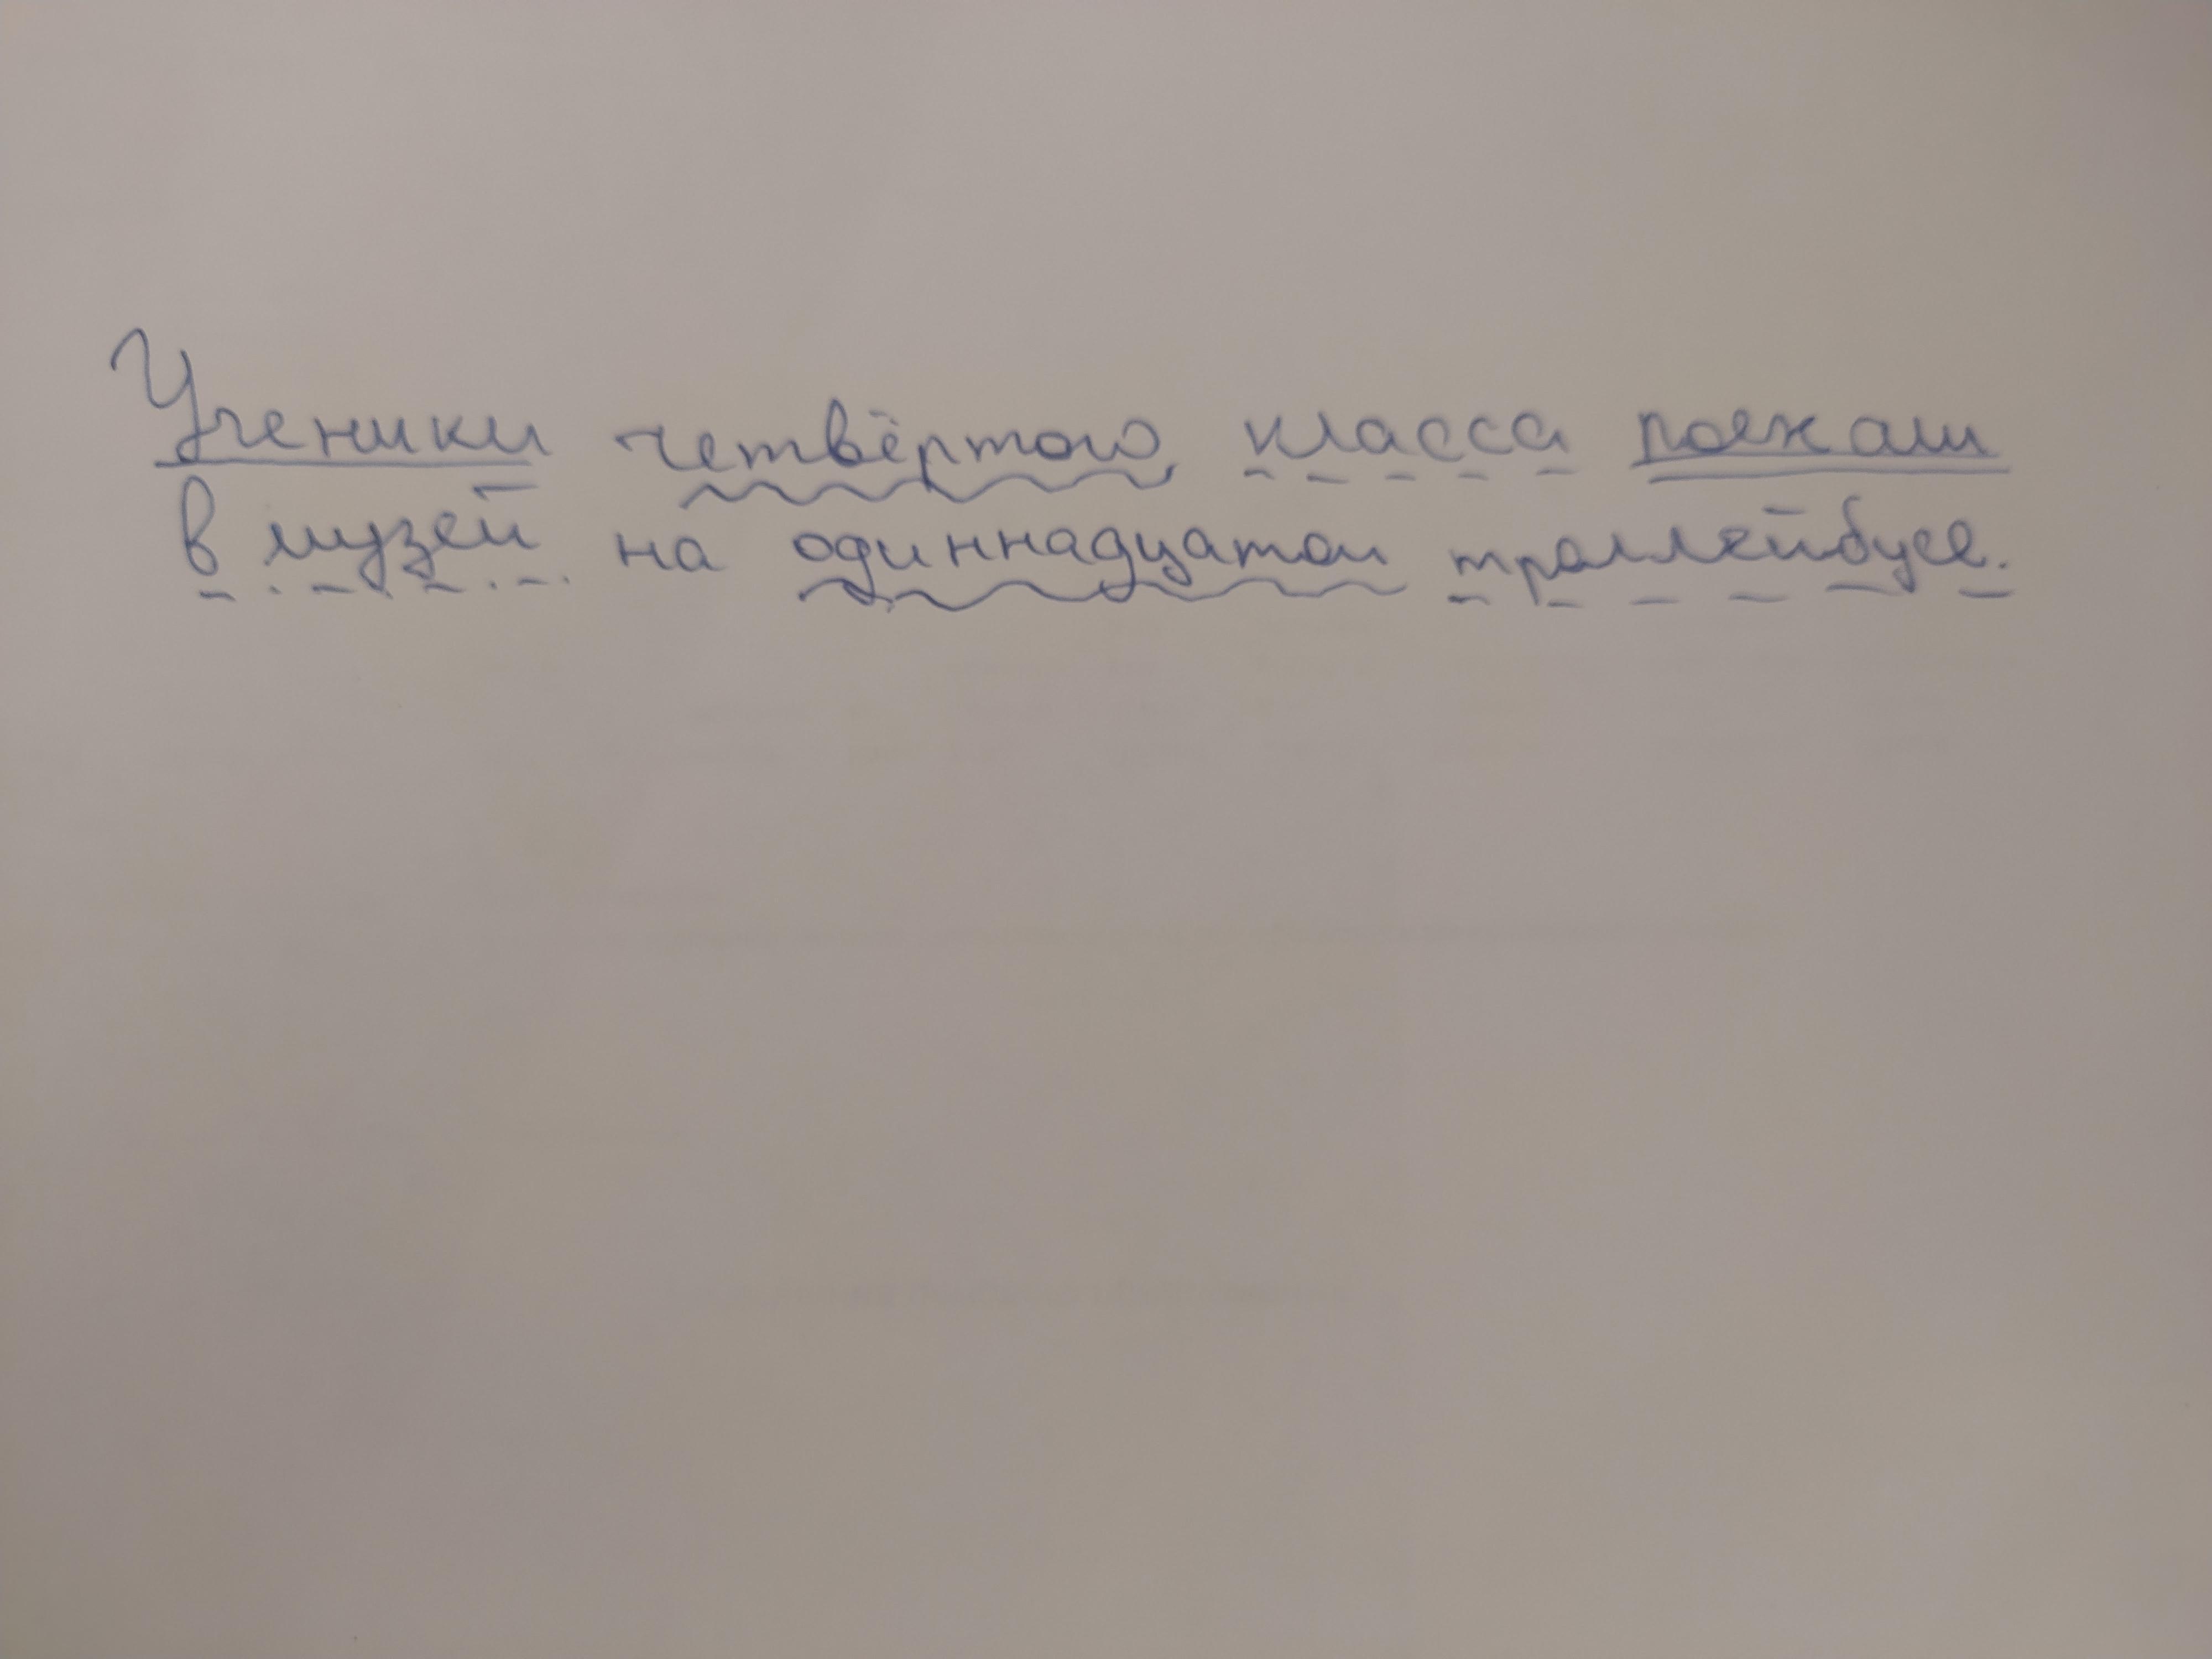 Ученики четвёртого класса поехали
в музей на одиннадцатом троллейбусе.